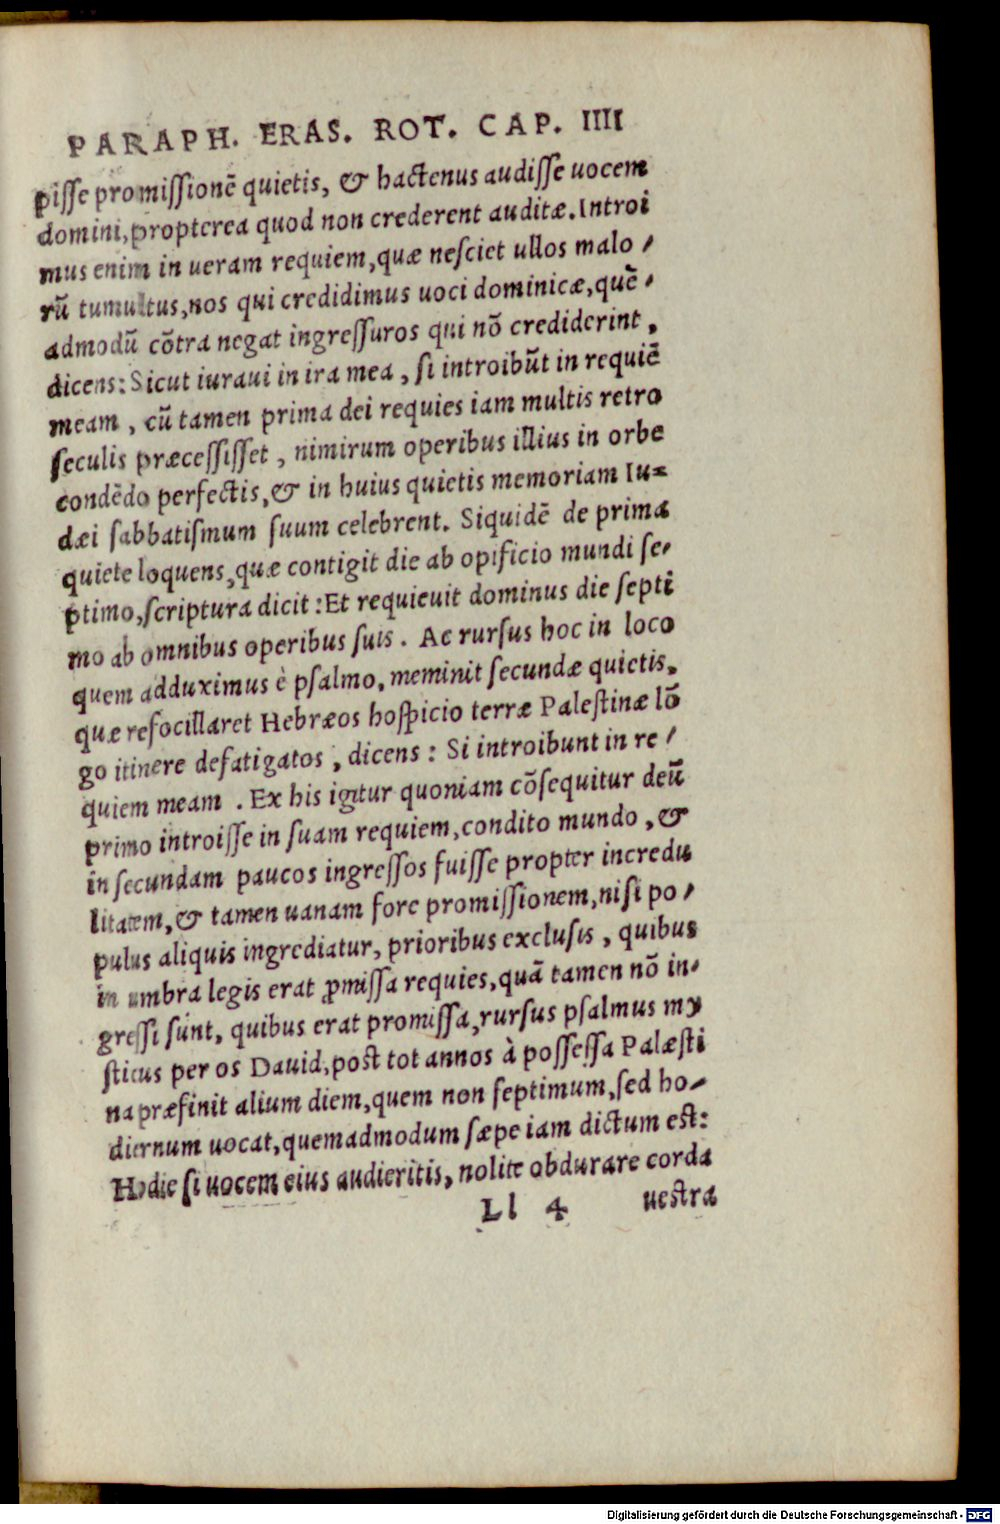 PARAPH. ERAS. ROT. CAP. IIII
pisse promissionē quietis, & hactenus audisse uocem
domini, propterea quod non crederent auditæ. Introi
mus enim in ueram requiem, quæ nesciet ullos malo /
rū tumultus, nos qui credidimus uoci dominicæ, quē /
admodū cōtra negat ingressuros qui nō crediderint,
dicens: Sicut iuraui in ira mea, si introibūt in requiē
meam, cū tamen prima dei requies iam multis retro
seculis præcessisset, nimirum operibus illius in orbe
condēdo perfectis, & in huius quietis memoriam Iu=
dæi sabbatismum suum celebrent. Siquidē de prima
quiete loquens, quæ contigit die ab opificio mundi se/
ptimo, scriptura dicit: Et requieuit dominus die septi
mo ab omnibus operibus suis. Ac rursus hoc in loco
quem adduximus è psalmo, meminit secundæ quietis,
quæ refocillaret Hebræos hospicio terræ Palestinæ lō
go itinere defatigatos, dicens: Si introibunt in re /
quiem meam. Ex his igitur quoniam cōsequitur deū
primo introisse in suam requiem, condito mundo, &
in secundam paucos ingressos fuisse propter incredu
litatem, & tamen uanam fore promissionem, nisi po /
pulus aliquis ingrediatur, prioribus exclusis, quibus
in umbra legis erat ꝓmissa requies, quā tamen nō in/
gressi sunt, quibus erat promissa, rursus psalmus my
sticus per os Dauid, post tot annos à possessa Palæsti
na præfinit alium diem, quem non septimum, sed ho/
diernum uocat, quemadmodum sæpe iam dictum est:
Hodie si uocem eius audieritis, nolite obdurare corda
Ll 4 uestra
Digitalisierung gefördert durch die Deutsche Forschungsgemeinschaft - DFG